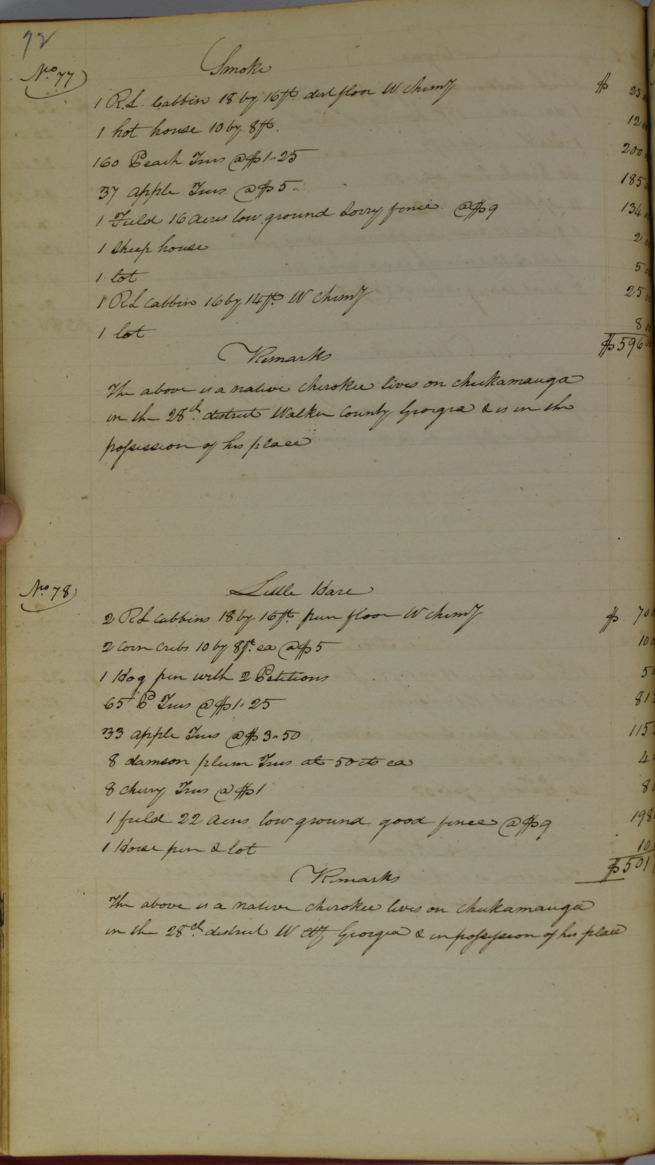 72
No 77
Smoke
1 R.L. Cabbin 18 by 16 ft. dirt floor W Chimy $ 23
1 hot house 10 by 8 ft. 12
160 Peach Trees @ $1.25 200
37 apple Trees @ $5. 185
1 Field 16 acres low ground sorry fence @ $9 134
1 Sheep house 2
1 lot 5
1 RL Cabbin 16 by 14 ft. W Chimy 25
1 lot 8
$596
Remarks
The above is a native cherokee lives on chickamauga
in the 28th district Walker County Georgia & is in the
possession of his place
No 78
Little Hare
2 RL Cabbins 18 by 16 ft. pun floor W Chimy $ 70
2 corn cribs 10 by 8 ft. ea @ $5 10
1 Hog pen with 2 Petitions 5
65 P Trees @ $1.25 81
33 apple Trees @ $3.50 115
8 damson plum Trees at 50 cts ea 4
8 cherry Trees @ $1 8
1 field 22 acres low ground good fence @ $9 198
1 Horse pen & lot 10
$501
Remarks
The above is a native cherokee lives on chickamauga
in the 28th district W Cty Georgia & in possession of his place